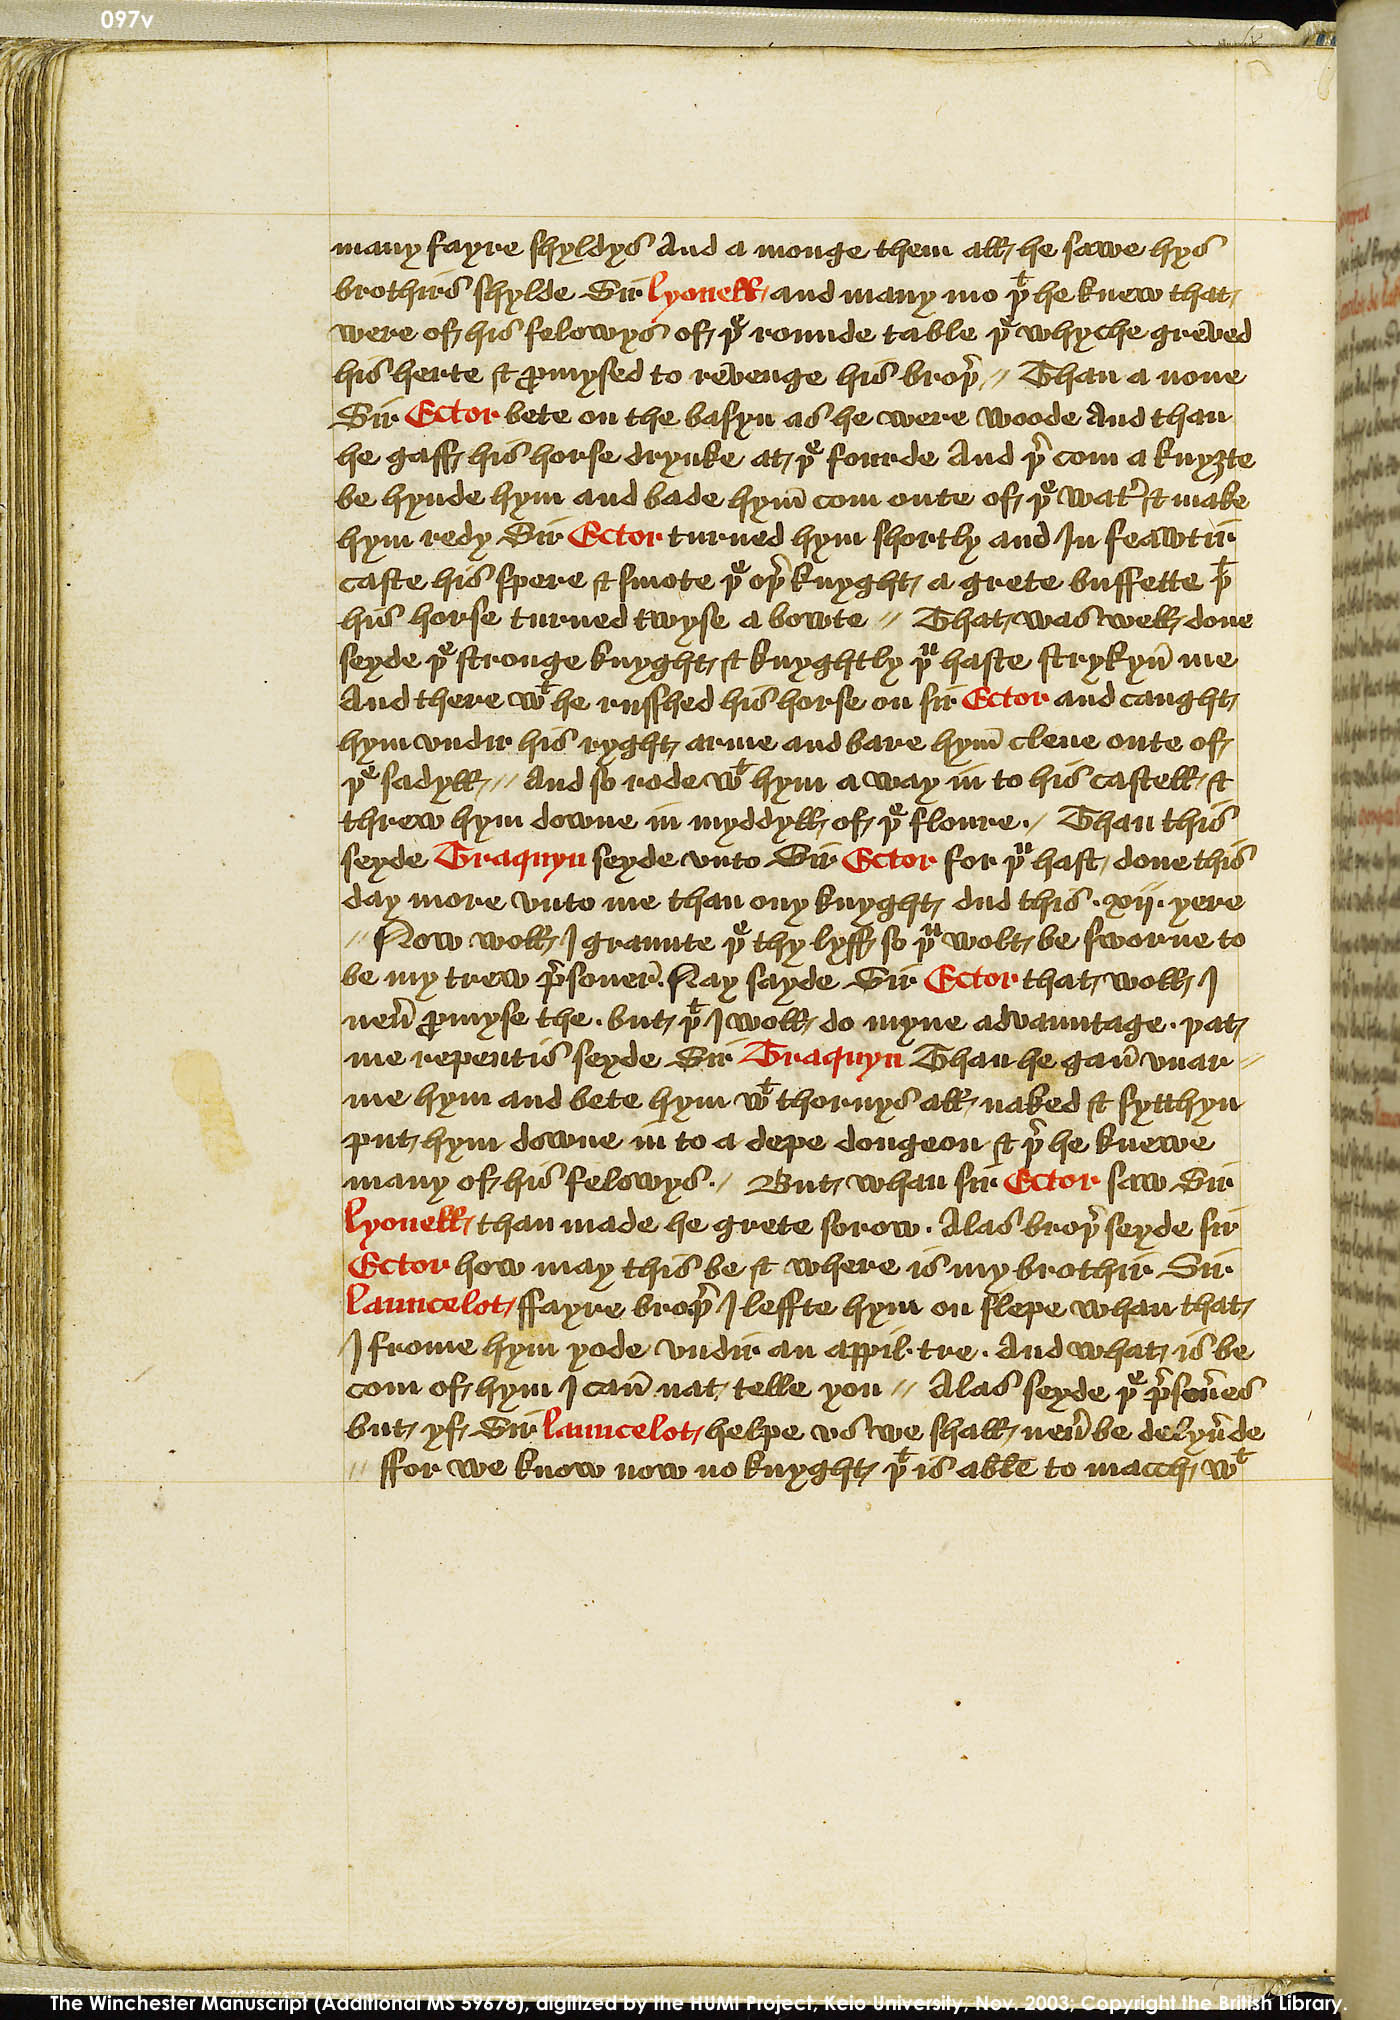 097v
many fayre shyldys And a monge them all he sawe hys
brothirs shylde Sir Lyonell and many mo þͭ he knew that
were of his felowys of þͤ rounde table þͤ whyche grēved
his herte & ꝓmysed to rēvenge his broþ̉ // Than a none
Sir Ector bete on the basyn as he were woode And than
he gaff his horse drynke at þͤ fourde And þ̉ com a knyȝte
be hynde hym and bade hym̄ com oute of þͤ wat̉ & make
hym redy Sir Ector turned hym shortly and In feawtir
caste his spere & smote þͤ oþ̉ knyght a grete buffette þͭ
his horse turned twyse a bowte // That was well done
seyde þͤ stronge knyght & knyghtly þͧ haste strykyn̄ me
And there wͭ he russhed his horse on sir Ector and caught
hym vndir his ryght arme and bare hym̄ clene oute of
þͤ sadyll /// And so rode wͭ hym a way in to his castell &
threw hym downe in myddyll of þͤ floure ·/ Than this
seyde Traquyn seyde vnto Sir Ector for þͧ hast done this
day more vnto me than ony knyght dud this · xij · yere
// Now woll I graunte þͤ thy lyff so þͧ wolt be sworne to
be my trew p̉soner̄. Nay sayde Sir Ector that woll I
neủ ꝓmyse the · but þͭ I woll do myne advauntage · þat
me repentis seyde Sir Traquyn Than he gan̄ vnar //
me hym and bete hym wͭ thornys all naked & sytthyn
put hym downe in to a depe dongeon & þ̉ he knewe
many of his felowys ·/ But whan sir Ector saw Sir
Lyonell than made he grete sorow · Alas broþ̉ seyde sir
Ector how may this be & where is my brothir Sir
Launcelot ffayre broþ̉ I leffte hym on slepe whan that
I frome hym yode vndir an appil tre · And what is be
com of hym I can̄ nat telle you // Alas seyde þͤ p̉son̉es
but yf Sir Launcelot helpe vs we shall neủ be delyủde
// ffor we know now no knyght þͭ is able to macch wͭ
The Winchester Manuscript (Additional MS 59678), digitized by the HUMI Project, Keio University, Nov. 2003; Copyright the British Library.